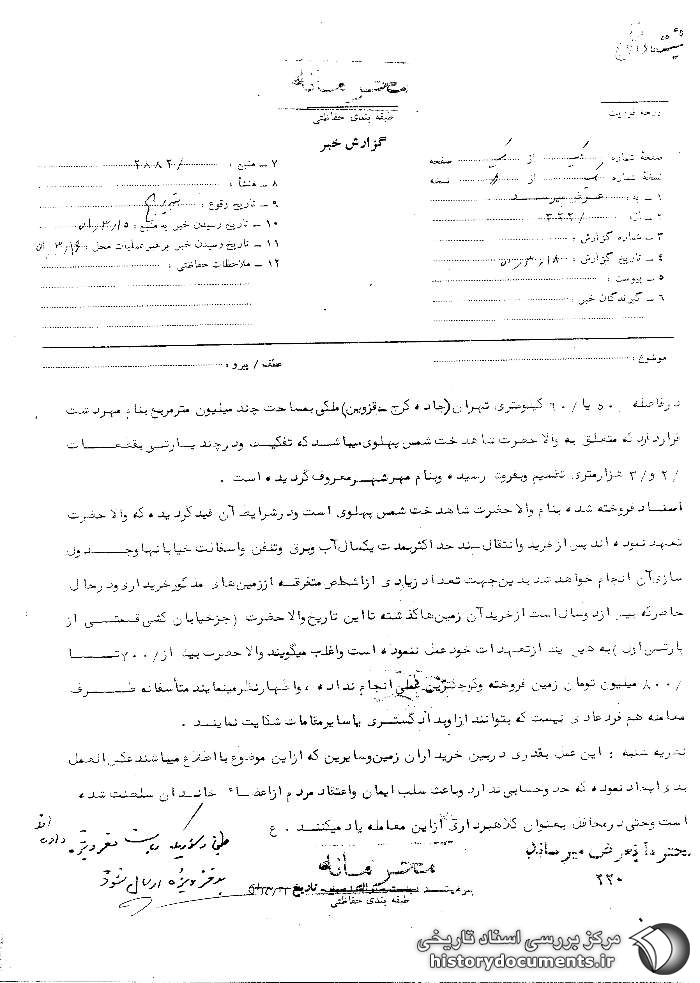 محرمانه
طبقه بندی حفاظتی
درجه فوریت
گزارش خبر
صفحه شماره یک از یک صفحه
نسخه شماره از نسخه
۱ - به : عرض میرسد
۲ - از : ۳۲۲/
۳ - شماره گزارش :
۴ - تاریخ گزارش : ۵۱/۳/۱۸
۵ - پیوست :
۶ - گیرندگان خبر :
۷ - منبع : ۲۸۸۲/
۸ - منشأ :
۹ - تاریخ وقوع :
۱۰ - تاریخ رسیدن خبر به منبع : ۵۱/۳/۱۵
۱۱ - تاریخ رسیدن خبر برهبر عملیات محل : ۵۱/۳/۱۶
۱۲ - ملاحظات حفاظتی :
موضوع :
عطف / پیرو :
در فاصله ۵۰ یا /۶۰ کیلومتری تهران (جاده کرج - قزوین) ملکی بمساحت چند میلیون مترمربع بنام مهردشت
قرار دارد که متعلق به والا حضرت شاهدخت شمس پهلوی میباشد که تفکیک و در چند پارتی بقطعات
/۲ و /۳ هزارمتری تقسیم وبفروش رسیده وبنام مهرشهر معروف گردیده است .
اسناد فروخته شده بنام والا حضرت شاهدخت شمس پهلوی است ودر شرایط آن قید گردیده که والا حضرت
تعهد نموده اند پس از خرید وانتقال سند حداکثر بمدت یکسال آب وبرق وتلفن واسفالت خیابانها وجدول
سازی آن انجام خواهد شد بدین جهت تعداد زیادی از اشخاص متفرقه از زمین های مذکور خریداری ودر حال
حاضر که بیش از دوسال است از خرید آن زمین ها گذشته تا این تاریخ والا حضرت (جز خیابان کشی قسمتی از
پارتی اول) به هیچ یک از تعهدات خود عمل ننموده است واغلب میگویند والا حضرت بیش از /۷۰۰ تا
/۸۰۰ میلیون تومان زمین فروخته وکوچکترین عملی انجام نداده ، واظهارنظر مینمایند متأسفانه طرف
معامله هم فرد عادی نیست که بتوانند از او بدادگستری یا سایر مقامات شکایت نمایند .
نظریه شنبه : این عمل بقدری در بین خریداران زمین وسایرین که از این موضوع با اطلاع میباشند عکس العمل
بدی ایجاد نموده که حد وحسابی ندارد وباعث سلب ایمان واعتقاد مردم از اعضاء خاندان سلطنت شده
است وحتی در محافل بعنوان کلاهبرداری از این معامله یاد میکنند . ع
۲۲۰
بدفتر ویژه ارسال شود
محرمانه
طبقه بندی حفاظتی
مرکز بررسی اسناد تاریخی
historydocuments.ir